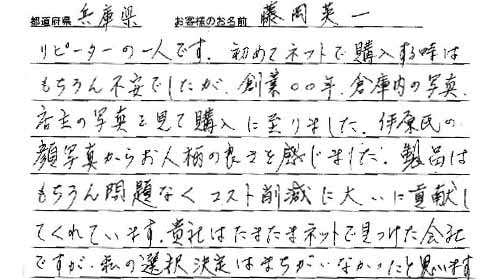 都道府県 兵庫県 お客様のお名前 藤岡英一
リピーターの一人です。初めてネットで購入する時は
もちろん不安でしたが、創業○○年、倉庫内の写真、
店主の写真を見て購入に至りました。伊原氏の
顔写真からお人柄の良さを感じました。製品は
もちろん問題なくコスト削減に大いに貢献し
てくれています。貴社はたまたまネットで見つけた会社
ですが、私の選択決定はまちがいなかったと思います